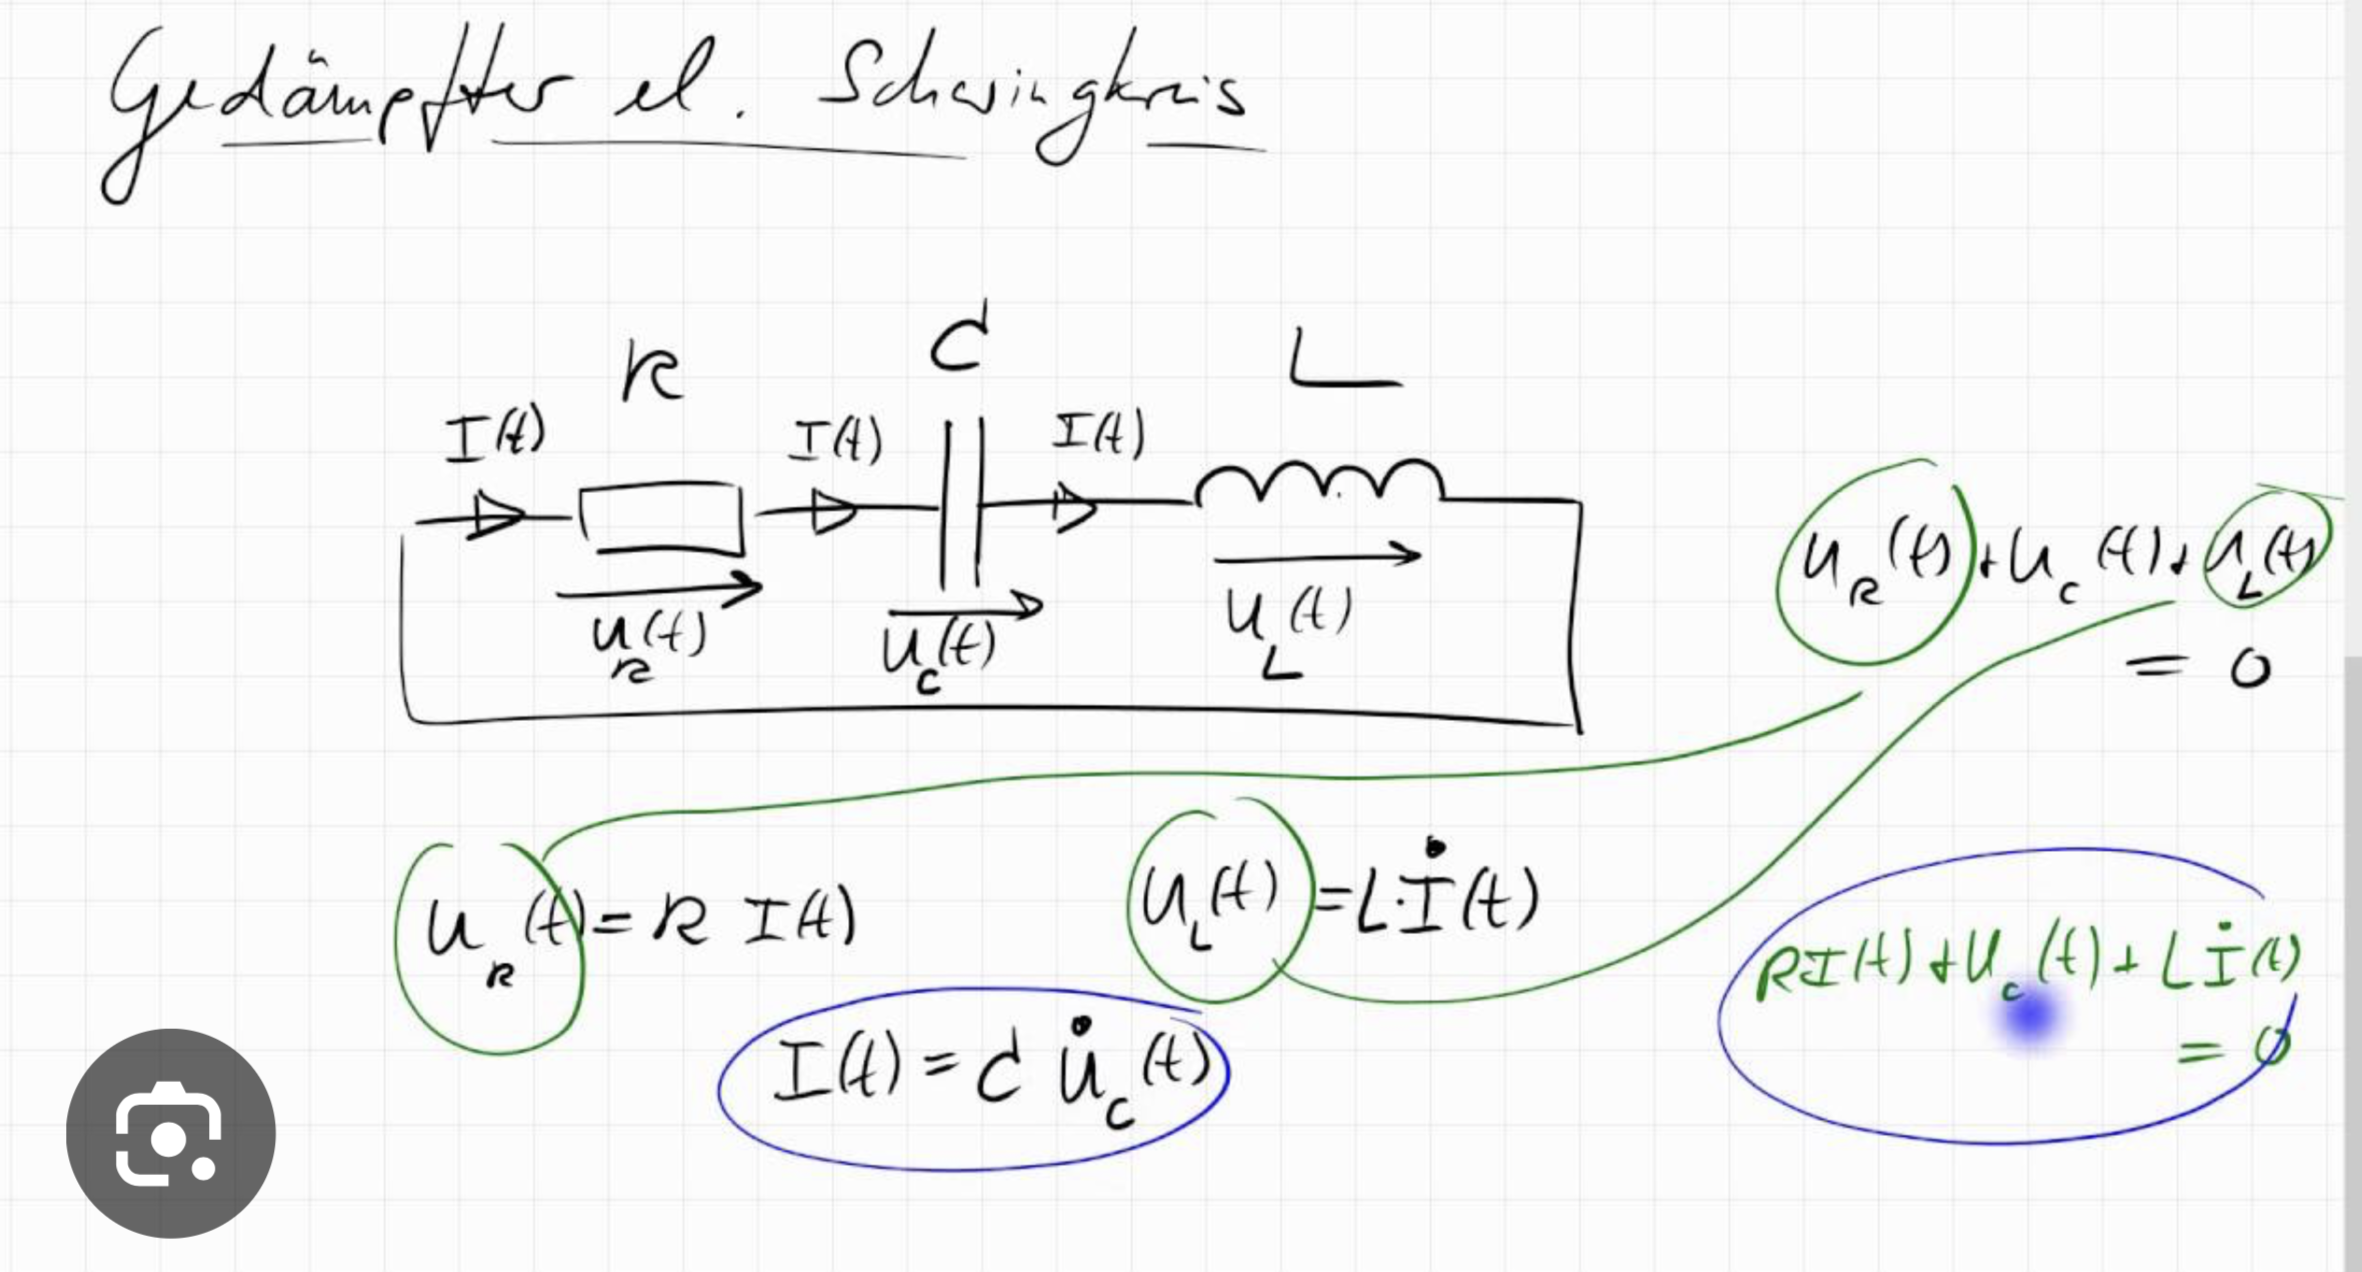 Gedämpfter el. Schwingkreis
R C L
I(t) I(t) I(t)
u_R(t) u_C(t) u_L(t)
u_R(t) + u_C(t) + u_L(t)
= 0
u_R(t) = R I(t)
u_L(t) = L·İ(t)
I(t) = C u̇_C(t)
RI(t) + u_C(t) + L İ(t)
= 0